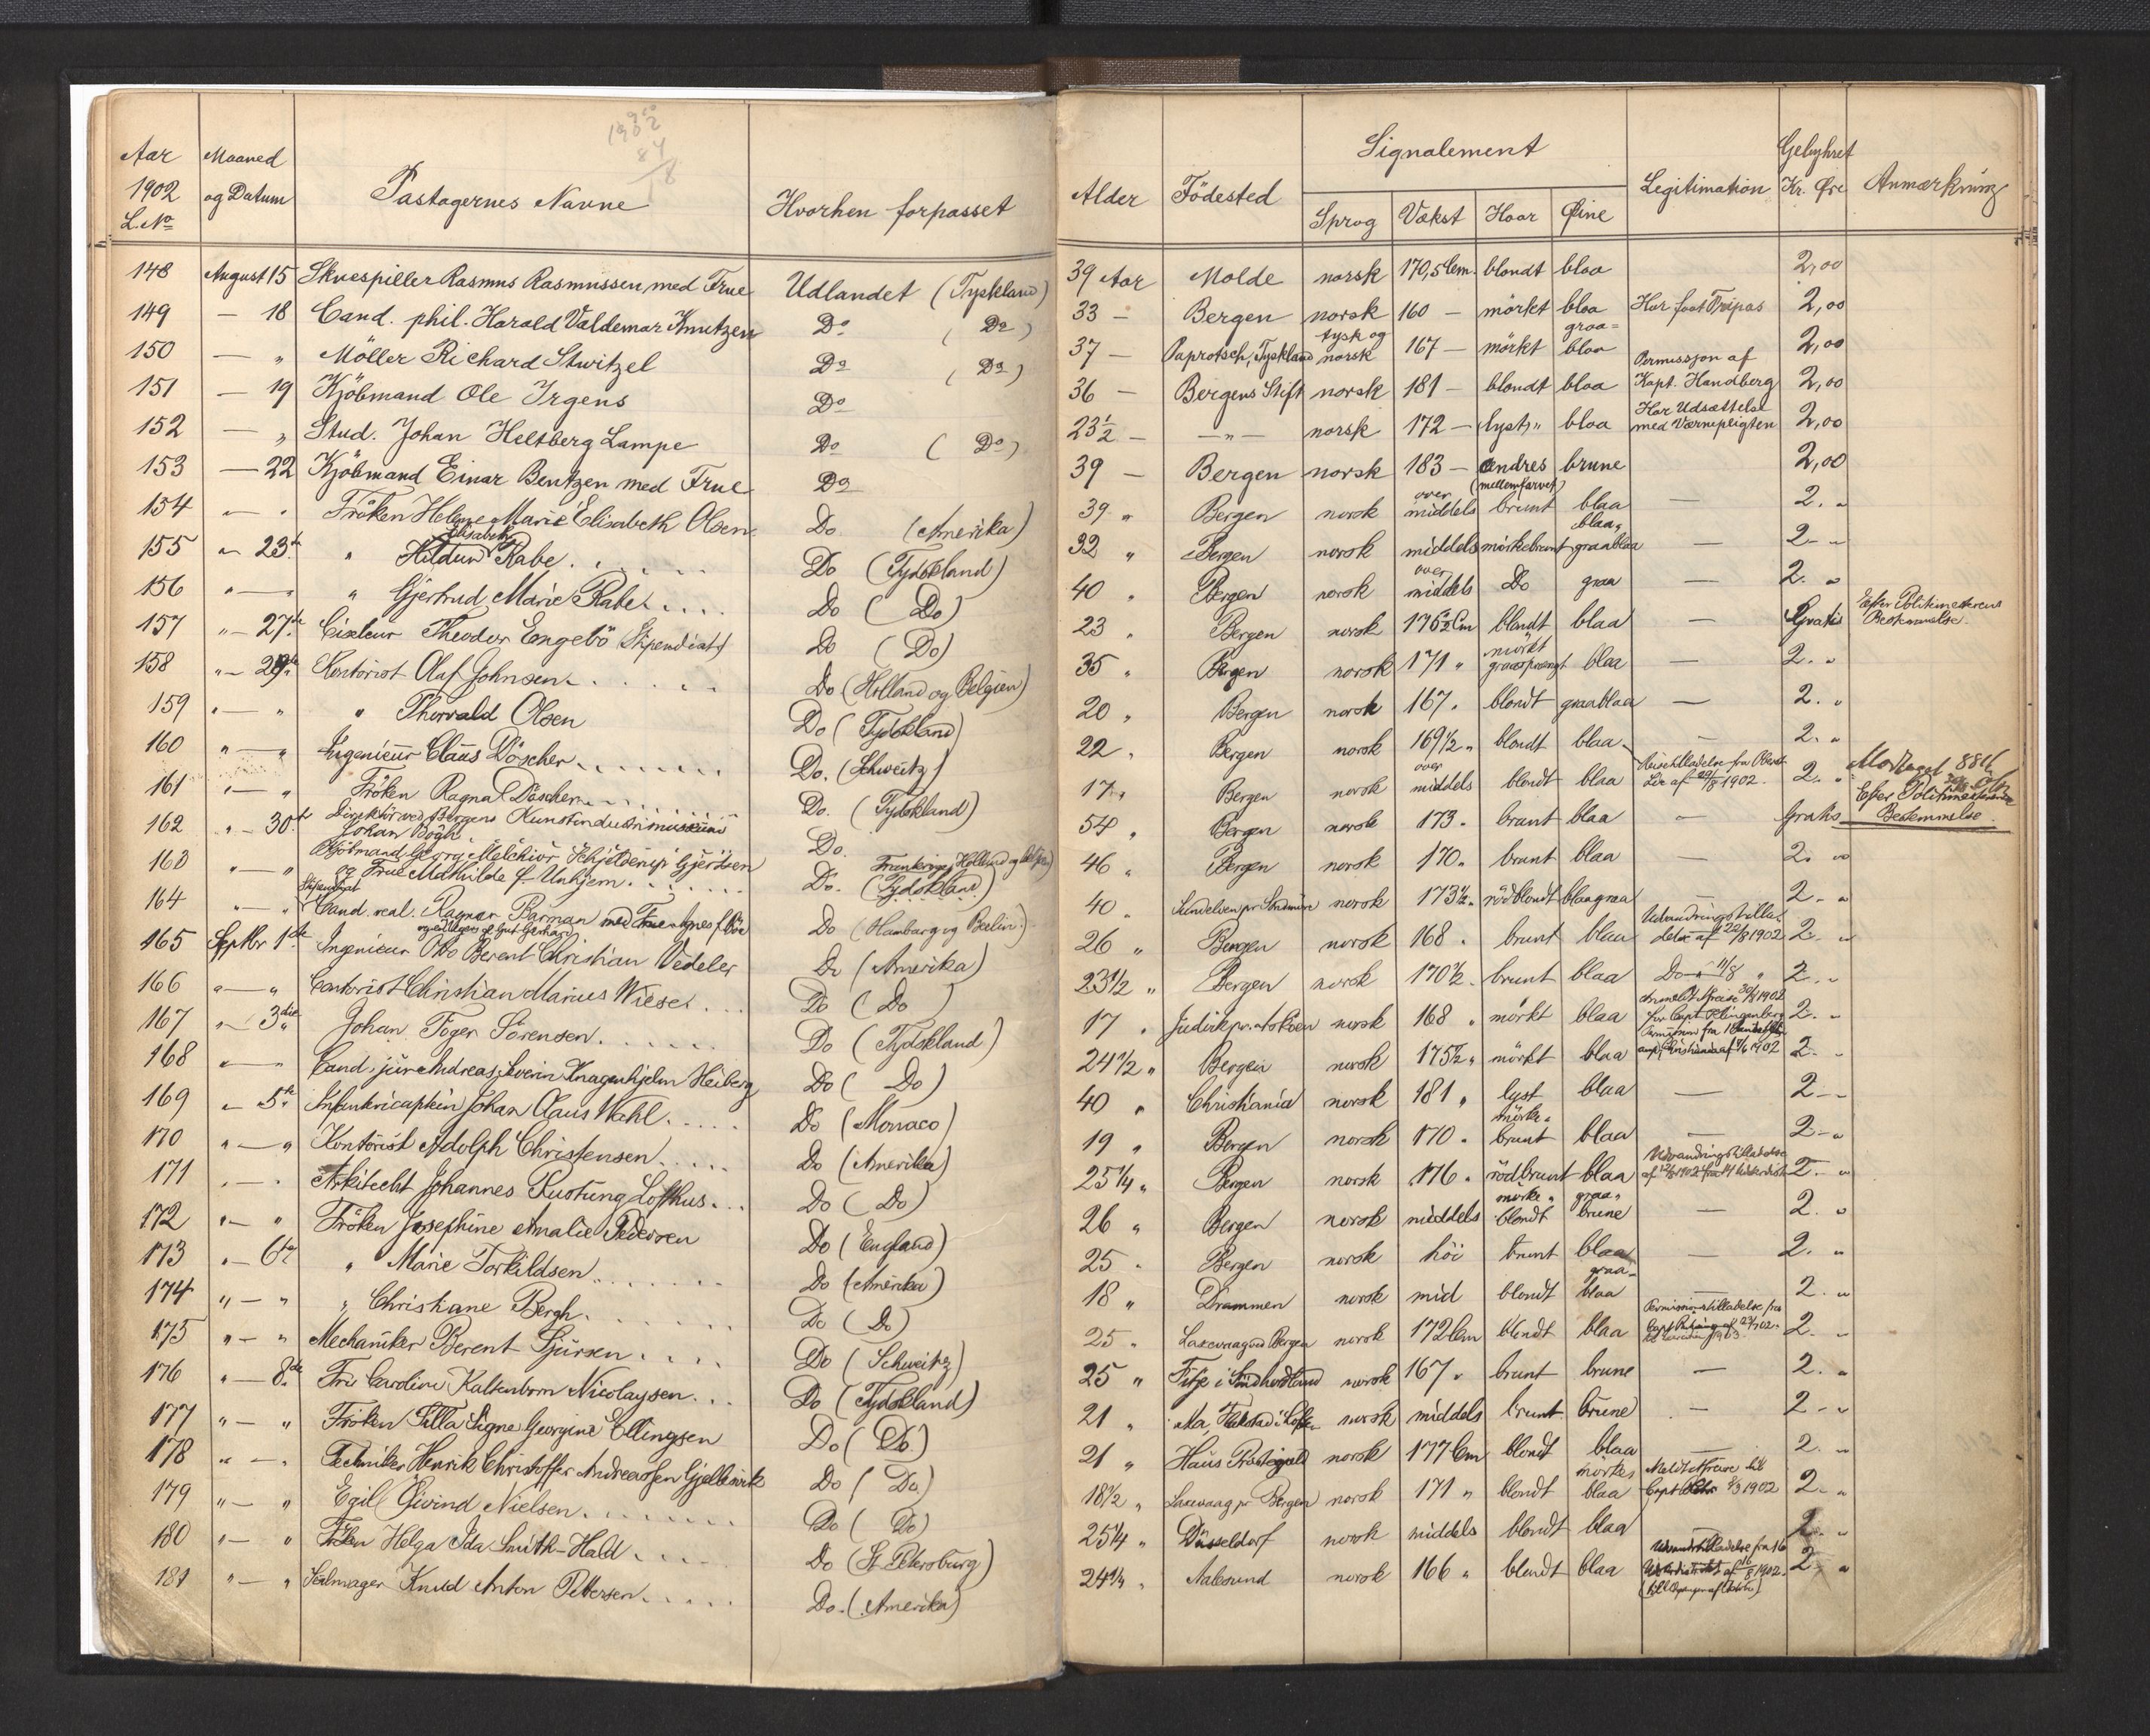 1902
84
18
Aar 1902 L. No | Maaned og Datum | Pastagernes Navne | Hvorhen forpasset | Alder | Födested | Signalement: Sprog | Vækst | Haar | Øine | Legitimation | Gebyhret Kr. Øre | Anmærkning
148 August 15 Skuespiller Rasmus Rasmussen med Frue Udlandet (Tyskland) 39 Aar Molde norsk 170,5 Cm. blondt blaa 2,00
149 — 18 Cand. phil. Harald Valdemar Knutzen Do (Do) 33 — Bergen norsk 160 — mörkt blaa Har faat Fripas 2,00
150 — „ Möller Richard Stwitzel Do (Do) 37 — Paprotsch, Tyskland tysk og norsk 167 — mörkt graa= blaa 2,00
151 — 19 Kjöbmand Ole Irgens Do 36 — Bergens Stift norsk 181 — blondt blaa Permissjon af Kapt. Handberg 2,00
152 — „ Stud. Johan Heltberg Lampe Do (Do) 23½ — — „ — norsk 172 — lyst „ blaa Har Udsættelse med Værnepligten 2,00
153 — 22 Kjöbmand Einar Bentzen med Frue Do 39 — Bergen norsk 183 — endres (mellemfarvet) brune 2,00
154 „ — „ Fröken Helene Marie Elisabeth Olsen Do (Amerika) 39 „ Bergen norsk over middels brunt blaa — 2. „
155 „ — 23de „ Hildur Elisabeth Rabe Do (Tydskland) 32 „ Bergen norsk middels mörkebrunt blaa„ graablaa — 2 - „
156 „ — „ „ Gjertrud Marie Rabe Do (Do) 40 „ Bergen norsk over middels Do graa — 2. „
157 „ — 27de Ciseleur Theodor Engebö (Stipendiat) Do (Do) 23 „ Bergen norsk 176½ Cm blondt blaa — Gratis Efter Politimesterens Bestemmelse.
158 „ — 29de Kontorist Olaf Johnsen Do (Holland og Belgien) 35 „ Bergen norsk 171 „ mörkt graasprængt blaa — 2. „
159 „ — „ „ Thorvald Olsen Do (Tydskland) 20 „ Bergen norsk 167 „ blondt graablaa — 2. „
160 „ — „ Ingenieur Claus Döscher Do. (Schweitz) 22 „ Bergen norsk 169½ „ blondt blaa — 2. „
161 „ — „ Fröken Ragna Döscher Do. (Tydskland) 17 „ Bergen norsk over middels blondt blaa 1902. 2. „ Modtaget
162 „ — 30te Direktör ved Bergens Kunstindustrimuseum Johan Bögh Do. 54 „ Bergen norsk 173 „ brunt blaa — Gratis Efter Politimesterens Bestemmelse.
163 „ — „ Kjöbmand Georg Melchior Schjelderup Gjertsen og Frue Mathilde f. Unhjem Do. Frankrige, Holland og Belgien (Tydskland) 46 „ Bergen norsk 170 „ brunt blaa — 2. 00
164 „ — „ Stipendiat Cand. real. Ragnar Barman med Frue Agnes f. Böe Do (Hamburg og Berlin) 40 „ norsk 173½ „ rödblondt blaagraa — 2 - „
165 Septbr 1ste Ingenieur Otto Berent Christian Vedeler Do (Amerika) 26 „ Bergen norsk 168 „ brunt blaa Udvandringstilladelse af 22/8 1902 2 - „
166 „ — „ Contorist Christian Marius Wiese Do (Do) 23½ „ Bergen norsk 170½ „ brunt blaa Do „ 11/8 „ 2 - „
167 „ — 3die Johan Foger Sörensen Do (Tydskland) 17 „ norsk 168 „ mörkt blaa Anmeldt Afreise 30/8 1902 for Capt. Klingenberg 2. „
168 „ — „ Cand. jur. Andreas Severin Knagenhjelm Heiberg Do (Do) 24½ „ Bergen norsk 175½ „ mörkt blaa 1902 2. „
169 „ — 5te Infantericaptein Johan Claus Wahl Do (Monaco) 40 „ Christiania norsk 181 „ lyst blaa — 2 - „
170 „ — „ Kontorist Adolph Christensen Do (Amerika) 19 „ Bergen norsk 170 „ mörke„ brunt blaa — 2 - „
171 „ — „ Arkitecht Johannes Rustung Lofthus Do (Do) 25¼ „ Bergen norsk 176 „ rödbrunt blaa Udvandringstilladelse 2. „
172 „ — „ Fröken Josephine Amalie Pedersen Do (England) 26 „ Bergen norsk middels mörke„ blondt graa„ brune — 2. „
173 „ — 6te „ Marie Torkildsen Do (Amerika) 25 „ Bergen norsk höi brunt blaa — 2. „
174 „ — „ „ Christiane Bergh Do (Do) 18 „ Drammen norsk mid blondt graa„ blaa — 2. „
175 „ — „ Mechaniker Berent Sjursen Do (Schweitz) 25 „ Laxevaag ved Bergen norsk 172 Cm blondt blaa Permissionstilladelse fra 2. „
176 „ — 8de Fru Caroline Kaltenborn Nicolaysen Do (Tydskland) 25 „ Fitje i Söndhordland norsk 167 „ brunt brune — 2. „
177 „ — „ Fröken Tilla Signe Georgine Ellingsen Do (Do) 21 „ norsk middels brunt brune — 2 - „
178 „ — „ Techniker Henrik Christoffer Andreassen Gjellesvik Do (Do) 21 „ Haus Præstegjeld norsk 177 Cm blondt blaa — 2. „
179 „ — „ Egill Öivind Nielsen Do (Do) 18½ „ Laxevaag pr Bergen norsk 171 „ blondt mörke„ blaa Meldt Afreise til Capt 1902 2. „
180 „ — „ Fröken Helga Ida Smith-Hald Do (St. Petersburg) 25¼ „ Düsseldorf norsk middels blondt blaa — 2. „
181 „ — „ Seilmager Knud Anton Pettersen Do. (Amerika) 24¼ „ Aalesund norsk 166 „ blondt blaa af 16/8 1902. 2 „